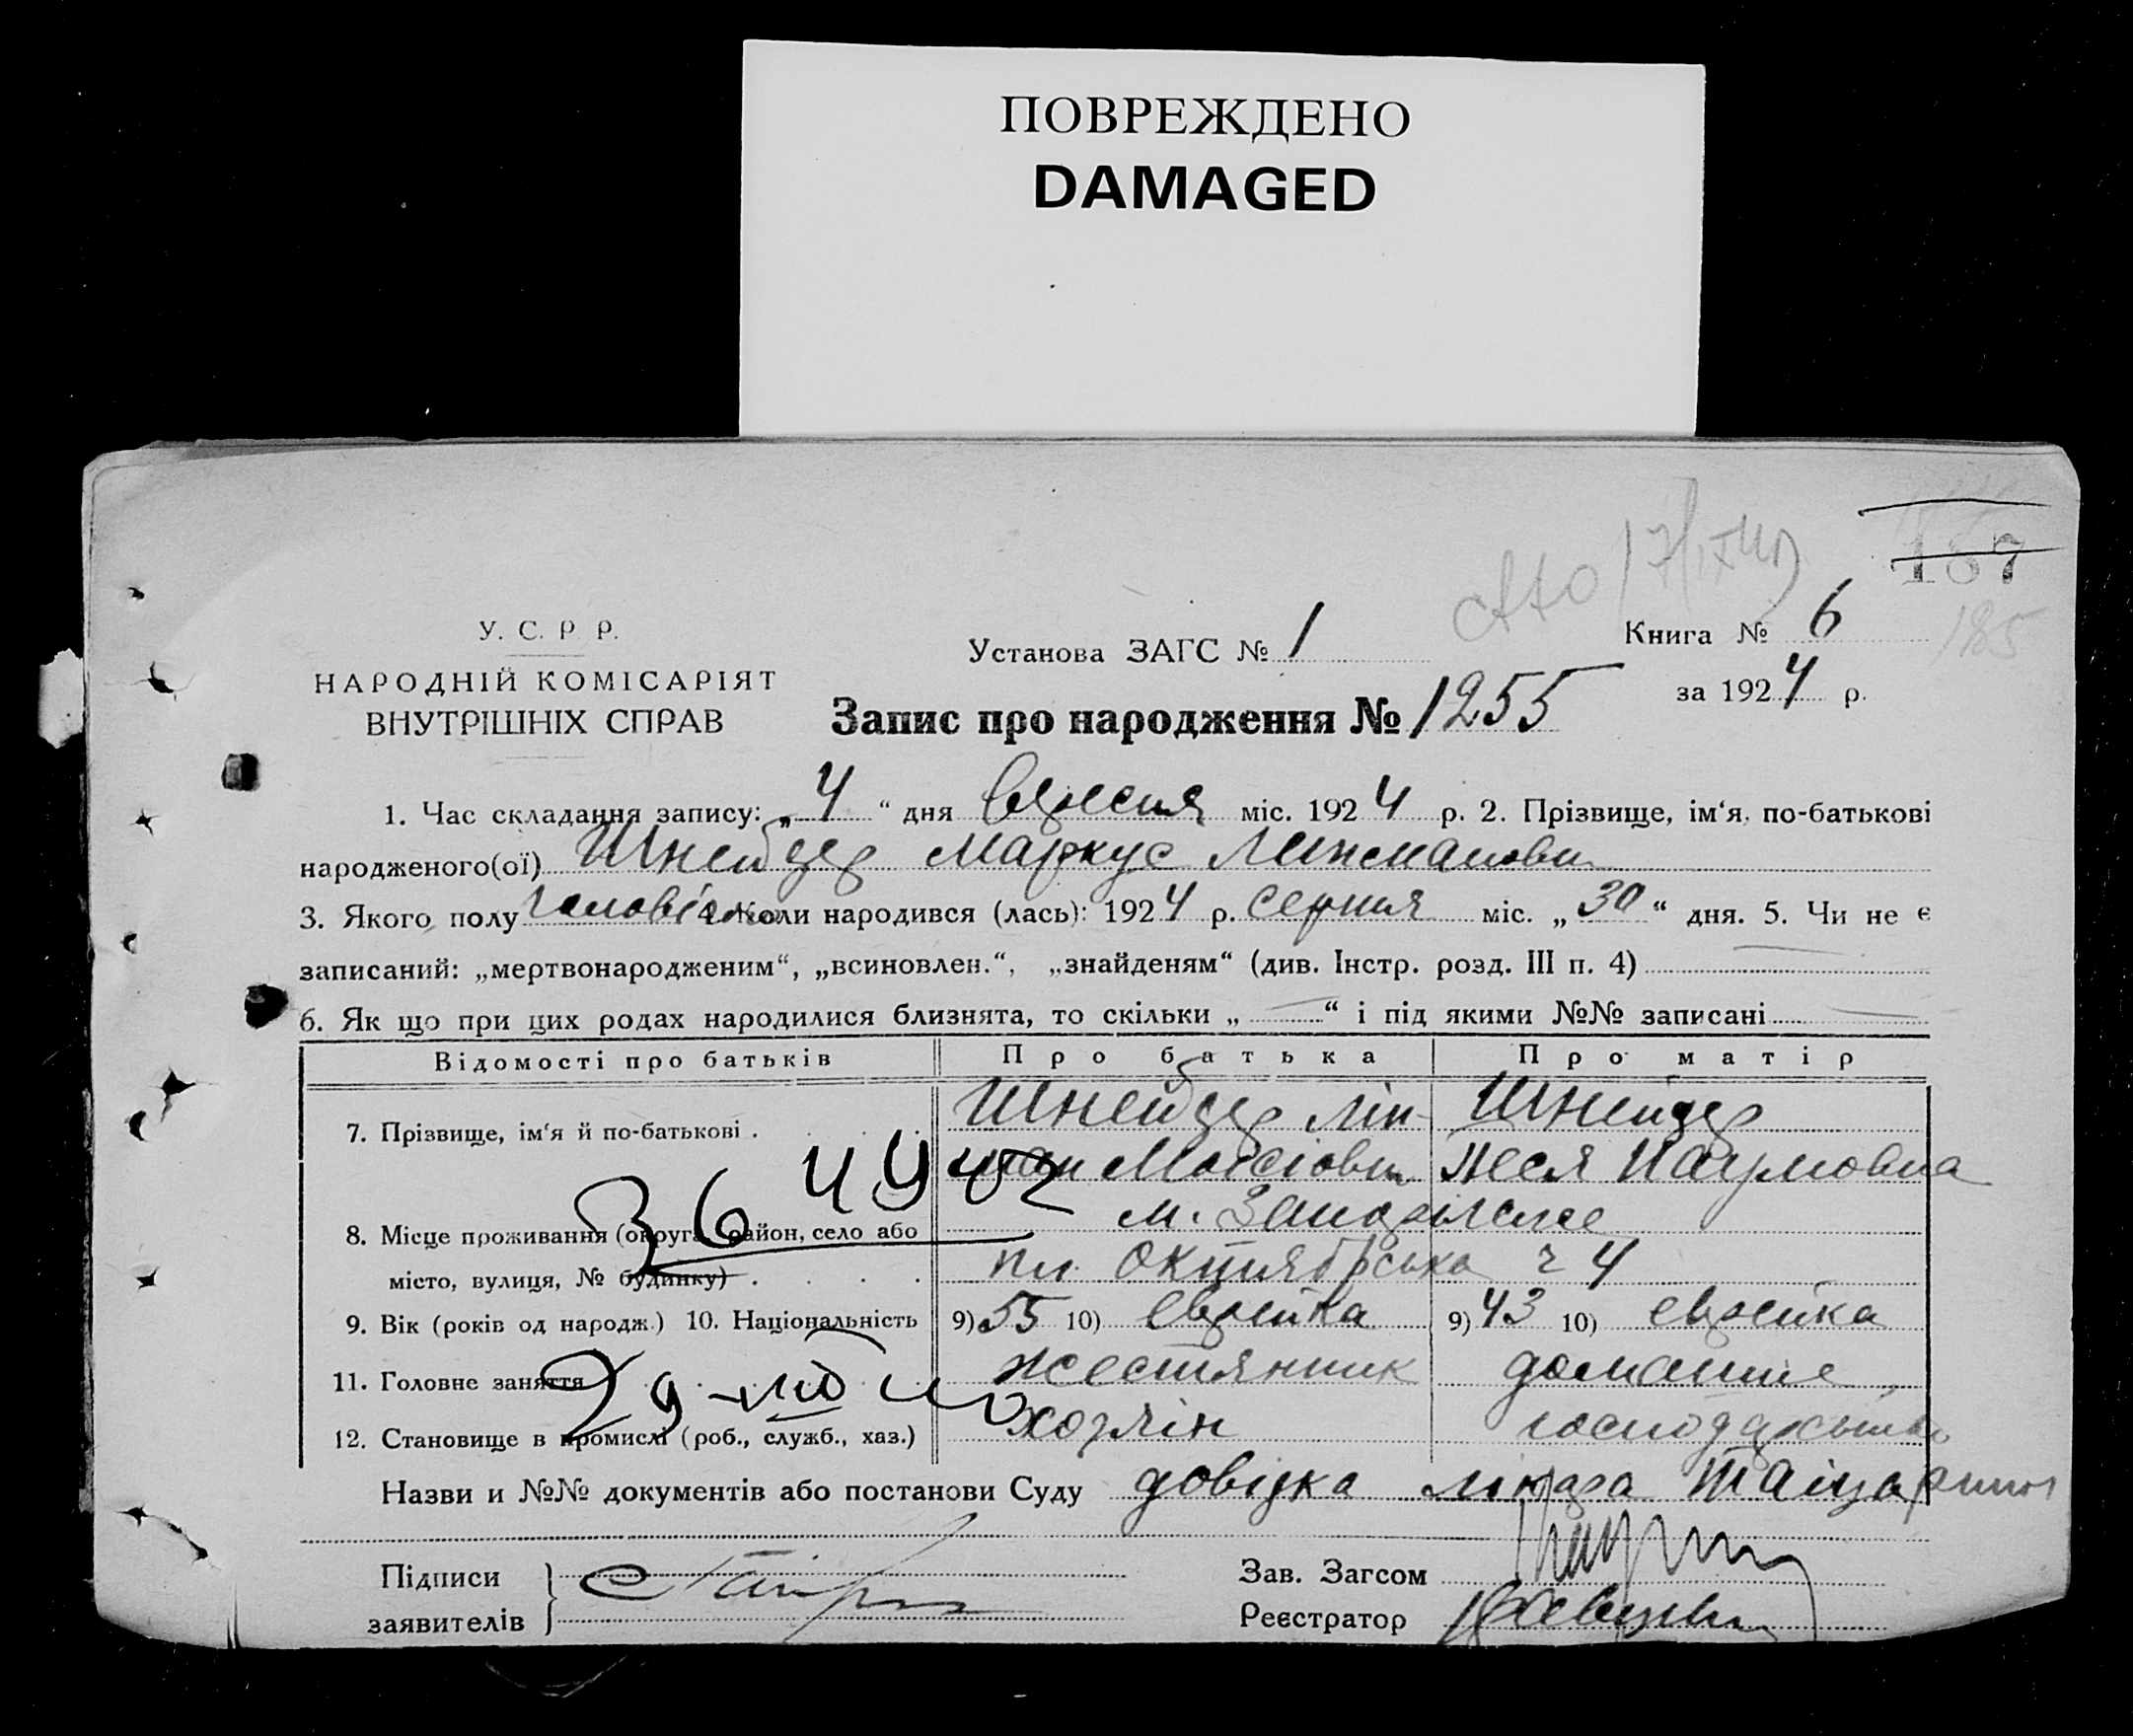 ПОВРЕЖДЕНО
DAMAGED
187
185
У. С. Р Р.
НАРОДНІЙ КОМІСАРІЯТ
ВНУТРІШНІХ СПРАВ
Установа ЗАГС № 1
Книга № 6
за 1924 р.
Запис про народження № 1255
1. Час складання запису: „4“ дня вересня міс. 1924 р. 2. Прізвище, ім‘я, по-батькові
народженого(ої) Шнейдер Маркус Липманович
3. Якого полу чоловічого 4. Коли народився (лась): 1924 р. серпня міс. „30“ дня. 5. Чи не є
записаний: „мертвонародженим“, „всиновлен.“, „знайденям“ (див. Інстр. розд. III п. 4)
6. Як що при цих родах народилися близнята, то скільки „ “ і під якими №№ записані
Відомості про батьків Про батька Про матір
7. Прізвище, ім‘я й по-батькові . Шнейдер Ліп- Шнейдер
ман Мойсіович Песя Наумовна
8. Місце проживання (округа, район, село або м. Запоріжжє
місто, вулиця, № будинку) . пл. Октябрська ч 4
9. Вік (років од народж.) 10. Національність 9) 55 10) еврейка 9) 43 10) еврейка
11. Головне заняття жестянник домашнє
12. Становище в промислі (роб., служб., хаз.) хозяін господарство
Назви и №№ документів або постанови Суду довідка лікаря
Підписи
заявителів
Зав. Загсом
Реєстратор